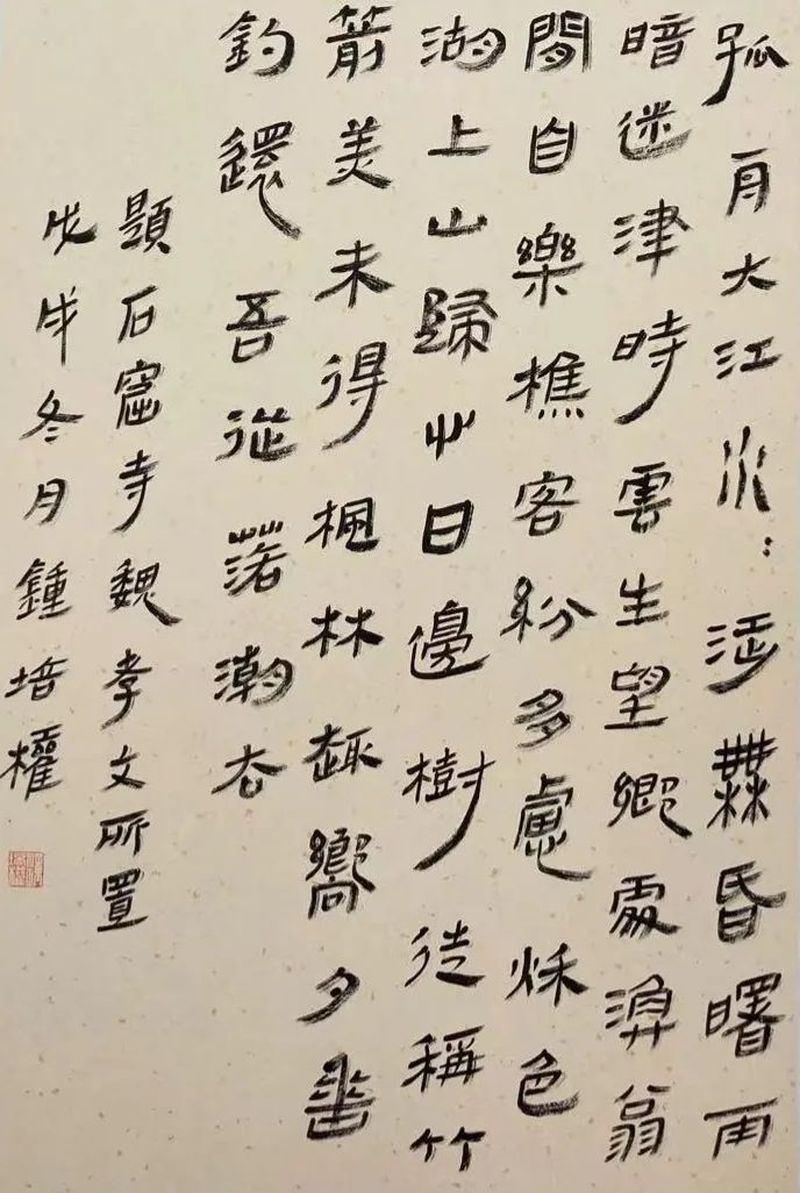 孤舟大江水：涉無昏曙雨
暗迷津時雲生望鄉處漁翁
閒自樂樵客紛多慮秋色
湖上山歸心日邊樹徒稱竹
箭美未得楓林趣嚮夕垂
釣還吾從落潮去
題石窟寺魏孝文所置
戊戌冬月鍾培權